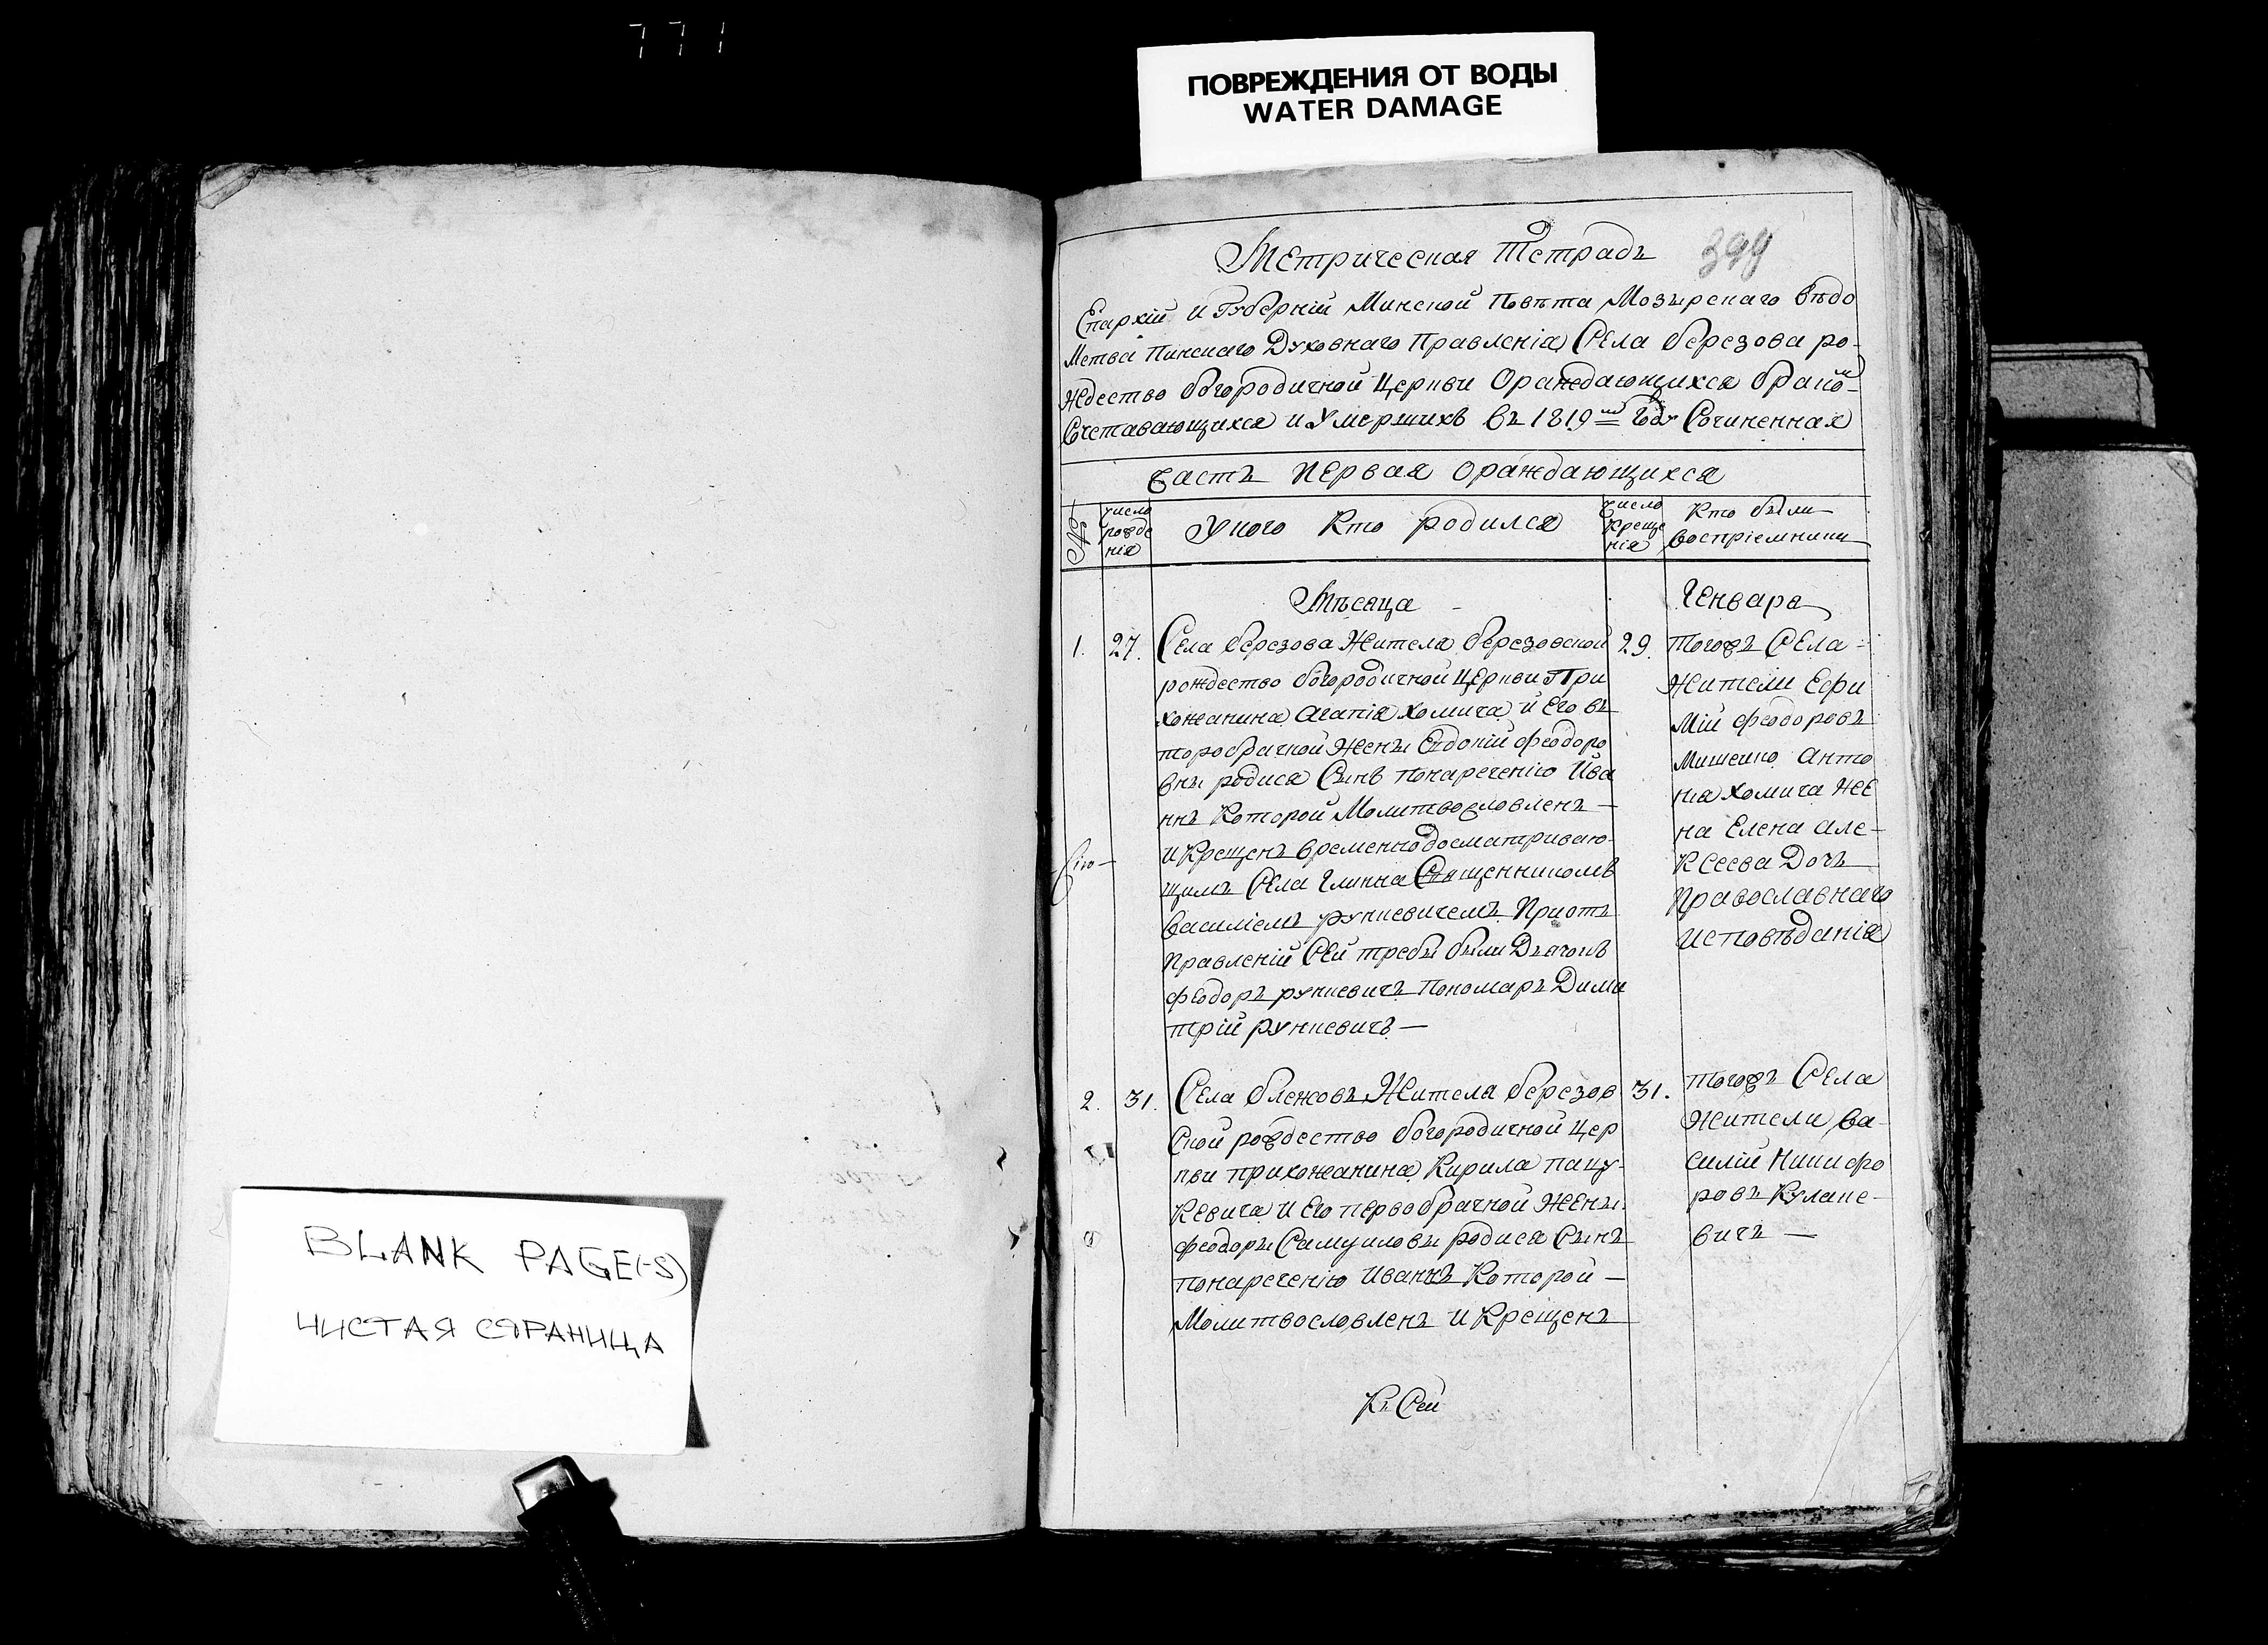 771
ПОВРЕЖДЕНИЯ ОТ ВОДЫ
WATER DAMAGE
Метрическая Тетрадь 399
Епархіи и Губерніи Минской Повѣта Мозырскаго вѣдо
мства Пинскаго Духовнаго Правленія Села Березова ро-
ждество Богородичной Церкви О раждающихся брако-
Сочетавающихся и Умершихъ въ 1819мъ Году Сочиненная
Часть Первая О раждающихся
№
число рожде нія
У кого Кто родился
Число Креще нія
Кто были
воспріемники
Мѣсяца
Генваря
1. 27.
Села Березова Жителя Березовской
рождество Богородичной Церкви При
хожанина Агапія Хомича и Его в
торобрачной Жены Евдокіи Феодоро
вны родися Сынъ по нареченію Ива
ннъ Которой Молитвословленъ —
и Крещенъ временно досматриваю-
щимъ Села Глинна Священникомъ
Василіемъ рункевичемъ При от
правленіи Сей требы были Дьячокъ
Феодоръ рункевичъ Пономаръ Дими
трій рункевичъ —
29.
тогожъ Села
Жители Ефи
мій Феодоровъ
Мишейко Анто
нія Хомича Же
на Елена Але-
Ксеева Дочь
Православнаго
исповѣданія
2. 31.
Села Блежовъ Жителя Березов
Ской рождество Богородичной Цер
кви прихожанина Кирила пацу-
Кевича и Его первобрачной Жены
Феодоры Самуиловы родися Сынъ
по нареченію Иваннъ Которой —
Молитвословленъ и Крещенъ
31.
тогожъ Села
Жители Ва-
силій Никифо
ровъ Кулаке-
вичъ —
Къ Сей
BLANK PAGE(-S)
ЧИСТАЯ СТРАНИЦА